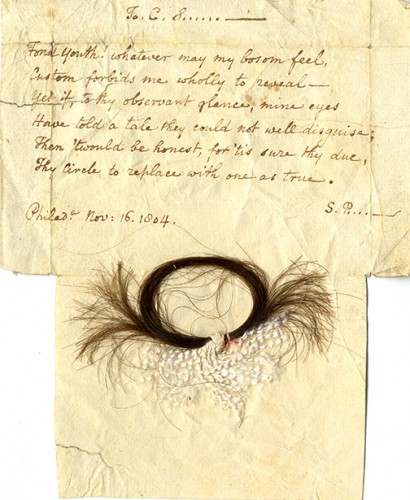 To C. S..... —
Fond Youth! whatever may my bosom feel,
Custom forbids me wholly to reveal —
Yet if to thy observant glance, mine eyes
Have told a tale they could not well disguise;
Then 'twould be honest, for 'tis sure thy due,
Thy Circle to replace with one as true.
Philada. Nov: 16. 1804.
S. P.... —